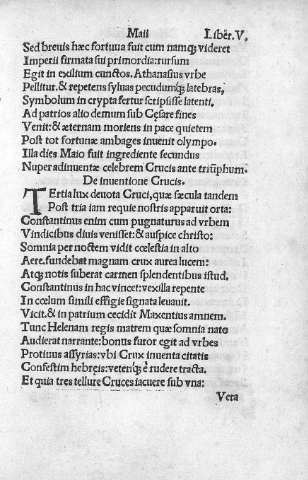 Maii Liber.V.
Sed breuis hæc fortuna fuit cum namq; videret
Imperii firmata sui primordia: rursum
Egit in exilium cunctos. Athanasius vrbe
Pellitur. & repetens syluas pecudumq; latebras,
Symbolum in crypta fertur scripsisse latenti.
Ad patrios alio demum sub Cęsare fines
Venit: & æternam moriens in pace quietem
Post tot fortunæ ambages inuenit olympo.
Illa dies Maio fuit ingrediente secundus
Nuper adinuentæ celebrem Crucis ante triũphum.
De inuentione Crucis.
TErtia lux deuota Cruci, quæ sæcula tandem
Post tria iam requie nostris apparuit orta:
Constantinus enim cum pugnaturus ad vrbem
Vindicibus diuis venisset: & auspice christo:
Somnia per noctem vidit cœlestia in alto
Aere. fundebat magnam crux aurea lucem:
Atq; notis suberat carmen splendentibus istud,
Constantinus in hac vincet: vexilla repente
In cœlum simili effigie signata leuauit.
Vicit. & in patrium cecidit Maxentius amnem.
Tunc Helenam regis matrem quæ somnia nato
Audierat narrante: bonus furor egit ad vrbes
Protinus assyrias: vbi Crux inuenta citatis
Confestim hebręis: veteriq; ę rudere tracta.
Et quia tres tellure Cruces iacuere sub vna:
Vera